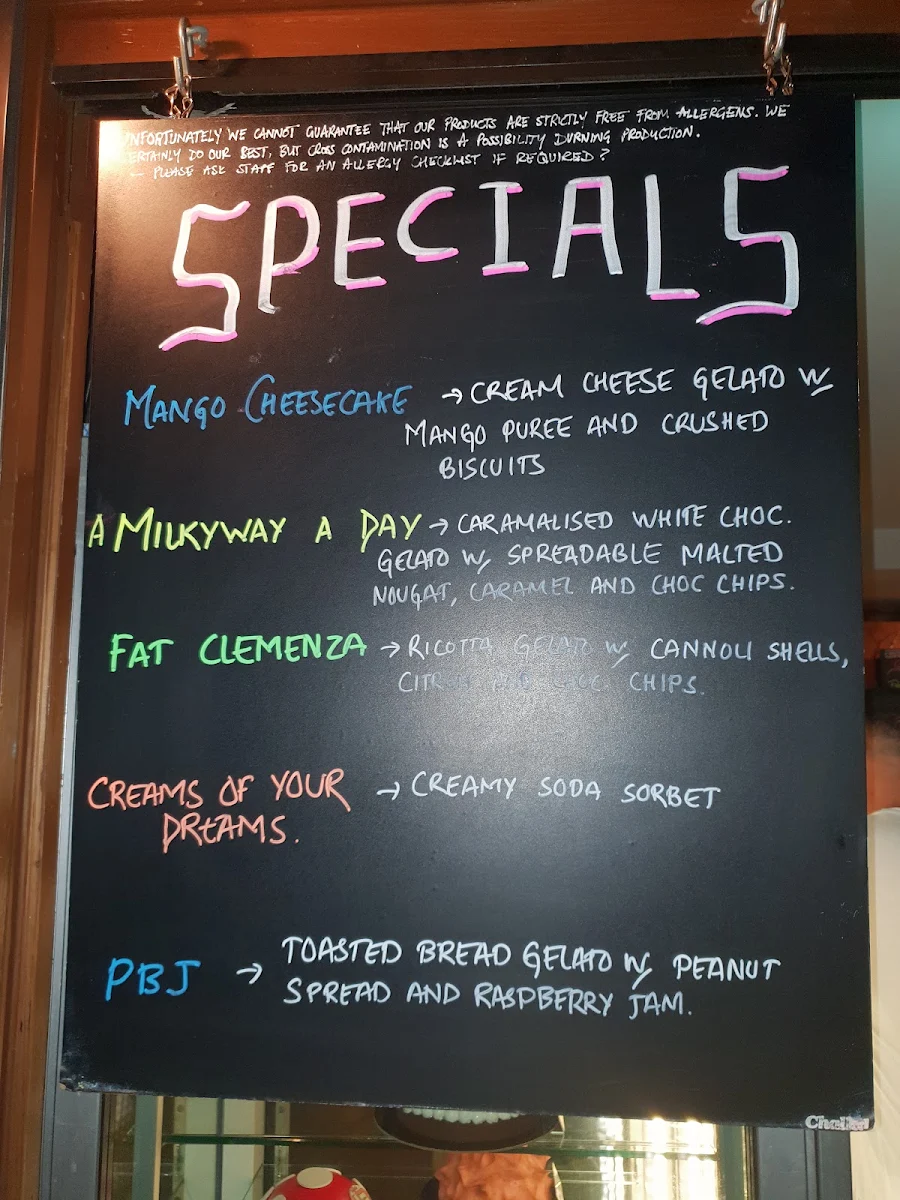 NFORTUNATELY WE CANNOT GUARANTEE THAT OUR PRODUCTS ARE STRICTLY FREE FROM ALLERGENS. WE
ERTAINLY DO OUR BEST, BUT CROSS CONTAMINATION IS A POSSIBILITY DURNING PRODUCTION.
– PLEASE ASK STAFF FOR AN ALLERGY CHECKLIST IF REQUIRED?
SPECIALS
MANGO CHEESECAKE → CREAM CHEESE GELATO W/
MANGO PUREE AND CRUSHED
BISCUITS
A MILKYWAY A DAY → CARAMALISED WHITE CHOC.
GELATO W/ SPREADABLE MALTED
NOUGAT, CARAMEL AND CHOC CHIPS.
FAT CLEMENZA → RICOTTA GELATO W/ CANNOLI SHELLS,
CITRUS AND CHOC CHIPS.
CREAMS OF YOUR → CREAMY SODA SORBET
DREAMS.
PBJ → TOASTED BREAD GELATO W/ PEANUT
SPREAD AND RASPBERRY JAM.